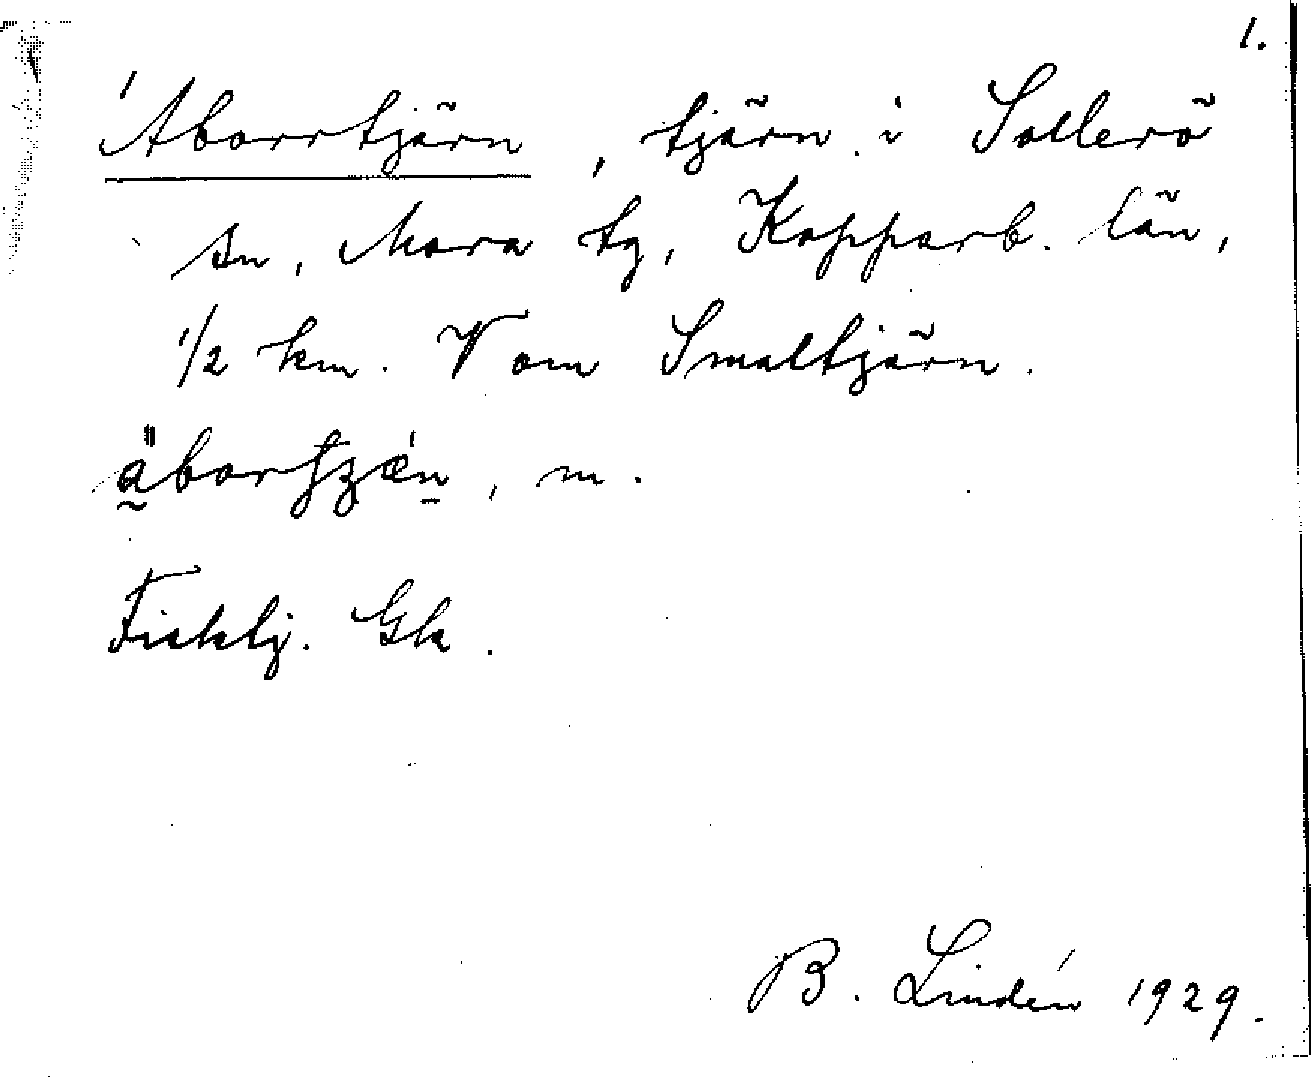 1.
Aborrtjärn, tjärn i Sollerö
sn, Mora tg, Kopparb. län,
1/2 km. V om Smaltjärn.
, m.
Fisktj. Gk.
B. Lindén 1929.